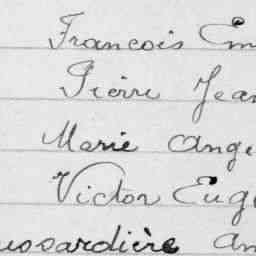 François Em
Pierre Jean
Marie Ange
Victor Eug
ussardière An